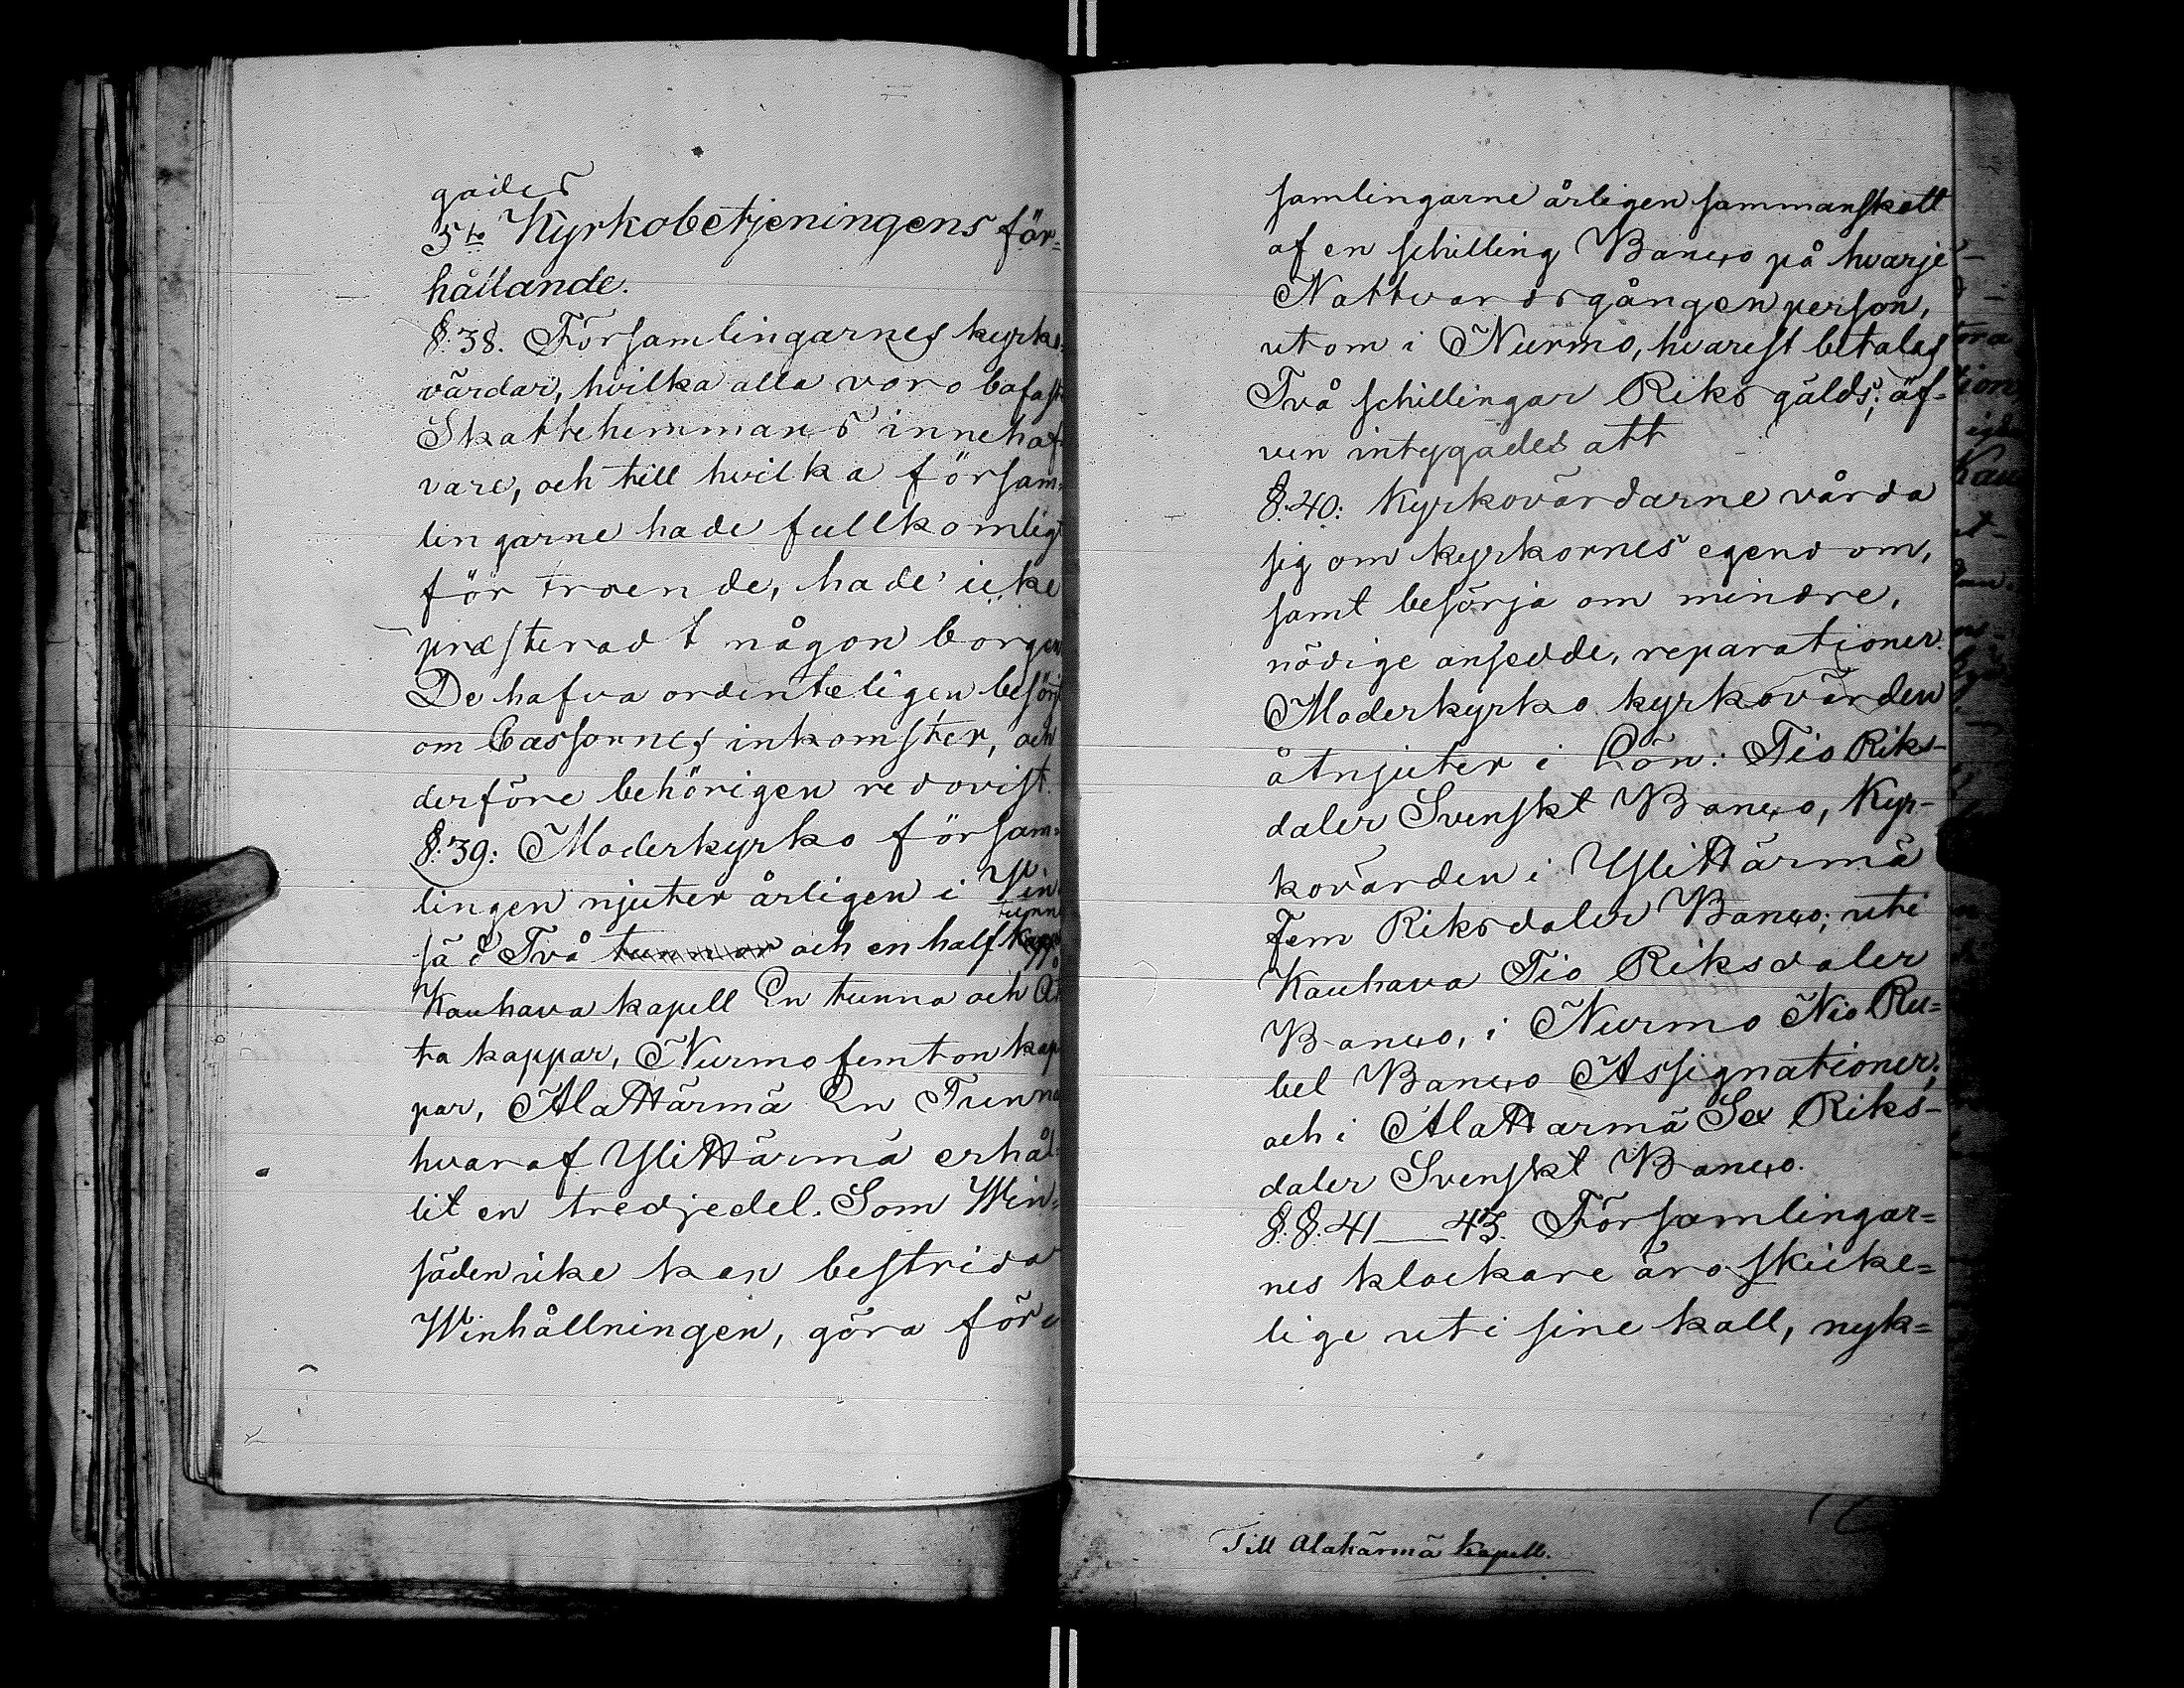 gades
5to Kyrkobetjeningens för-
hållande.
§.38. Församlingarnes kyrko-
värdar, hvilka alla voro bofaste
Skattehemmans innehaf-
vare, och till hvilka försam-
lingarne hade fullkomligt
förtroende, hade icke
præsteradt någon borgen
De hafva ordenteligen besörjt
om Cassornes inkomster, och
derföre behörigen redovist.
§.39: Moderkyrko försam-
lingen njuter årligen i Vin
tunn
säd Två tunnor och en half kapp
Kauhava kapell En tunna och Åt
ta kappar, Nurmo femton kap
par, AlaHärmä En Tunna
hvaraf YliHärmä erhål-
lit en tredjedel. Som Win-
säden icke kan bestrida
Winhållningen, göra för
samlingarne årligen sammanskott
af en schilling Banco på hvarje
Nattvardsgången person,
utom i Nurmo, hvarest betalas
Två schillingar Riksgälds; äf-
ven intygades att
§.40: Kyrkovärdarne vårda
sig om kyrkornes egendom,
samt besörja om mindre,
nödige ansedde, reparationer.
Moderkyrko kyrkovärden
åtnjuter i Lön: Tio Riks-
daler Svenskt Banco, Kyr-
kovärden i YliHärmä
Fem Riksdaler Banco; uti
Kauhava Tio Riksdaler
Banco, i Nurmo Nio Ru-
bel Banco Assignationer;
och i AlaHärmä Sex Riks-
daler Svenskt Banco.
§.§.41__43. Församlingar-
nes klockare äro skicke-
lige uti sine kall, nyk-
Till Alahärmä kapell.